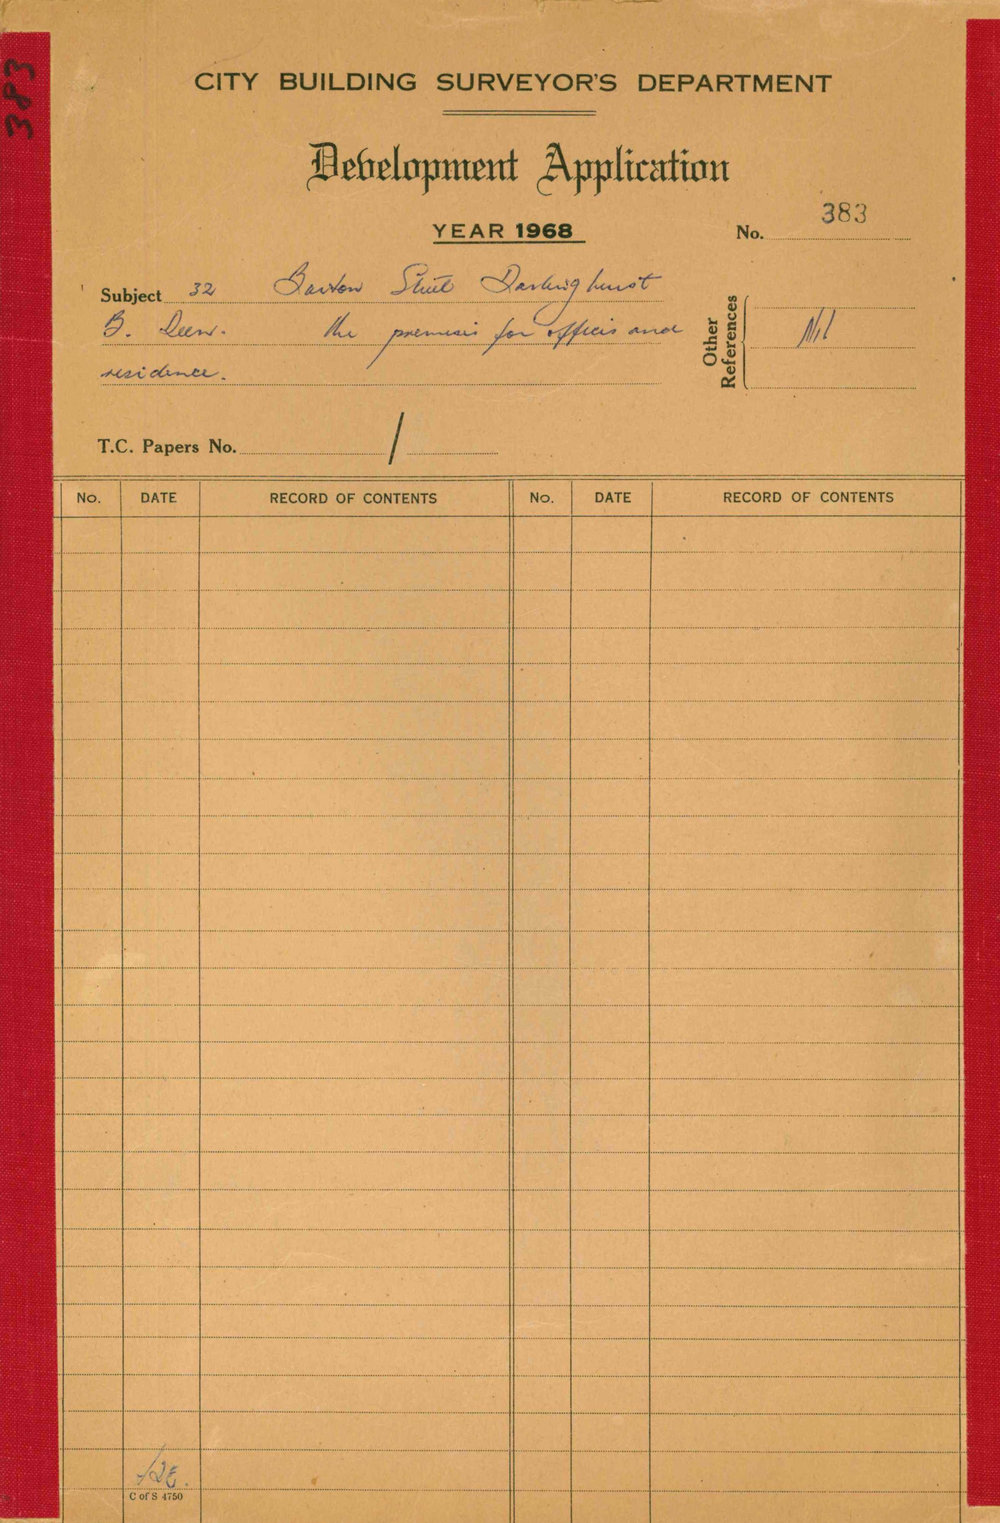 383
CITY BUILDING SURVEYOR'S DEPARTMENT
Development Application
YEAR 1968
No. 383
Subject 32 Street Darlinghurst
B. the premises for offices and
residence.
Other References
Nil
T.C. Papers No. /
No. DATE RECORD OF CONTENTS No. DATE RECORD OF CONTENTS
C of S 4750